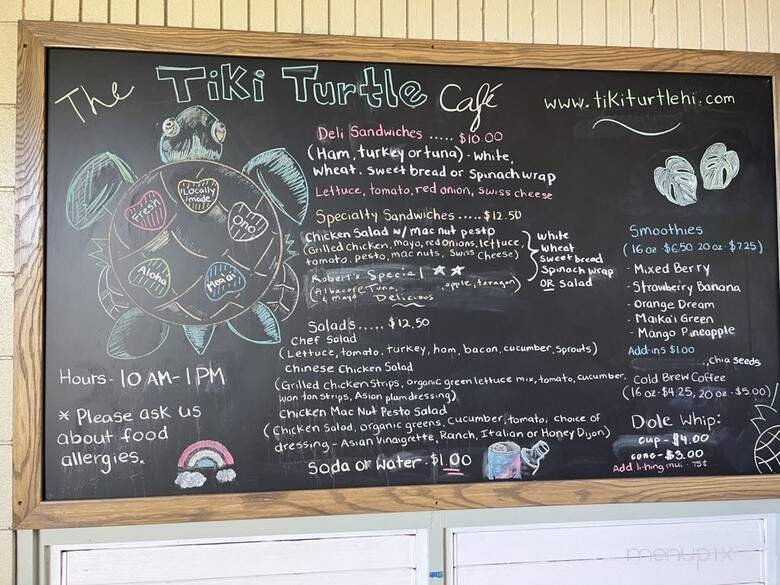 The Tiki Turtle Café
www.tikiturtlehi.com
Fresh
Locally made
Ono
Aloha
Hours - 10 AM - 1 PM
* Please ask us
about food
allergies.
Deli Sandwiches ..... $10.00
(Ham, turkey or tuna) - white,
wheat. sweet bread or Spinach wrap
Lettuce, tomato, red onion, swiss cheese
Specialty Sandwiches ..... $12.50
Chicken Salad w/ mac nut pesto
(Grilled chicken, mayo, red onions, lettuce,
tomato, pesto, mac nuts, Swiss Cheese)
Robert's Special ★ ★
(Albacore Tuna, apple, taragon)
& mayo Delicious
white
wheat
sweet bread
Spinach wrap
OR Salad
Salads ..... $12.50
Chef Salad
(Lettuce, tomato, turkey, ham, bacon, cucumber, sprouts)
Chinese Chicken Salad
(Grilled chicken strips, organic green lettuce mix, tomato, cucumber,
won tan strips, Asian plum dressing)
Chicken Mac Nut Pesto Salad
(Chicken Salad, organic greens, cucumber, tomato, choice of
dressing - Asian Vinagrette, Ranch, Italian or Honey Dijon)
Soda or Water - $1.00
Smoothies
(16 oz - $6.50 20 oz - $7.25)
- Mixed Berry
- Strawberry Banana
- Orange Dream
- Maika'i Green
- Mango Pineapple
Add-ins $1.00
, chia seeds
Cold Brew Coffee
(16 oz - $4.25, 20 oz - $5.00)
Dole Whip:
cup - $4.00
cone - $3.00
Add li hing mui - 75¢
menupix